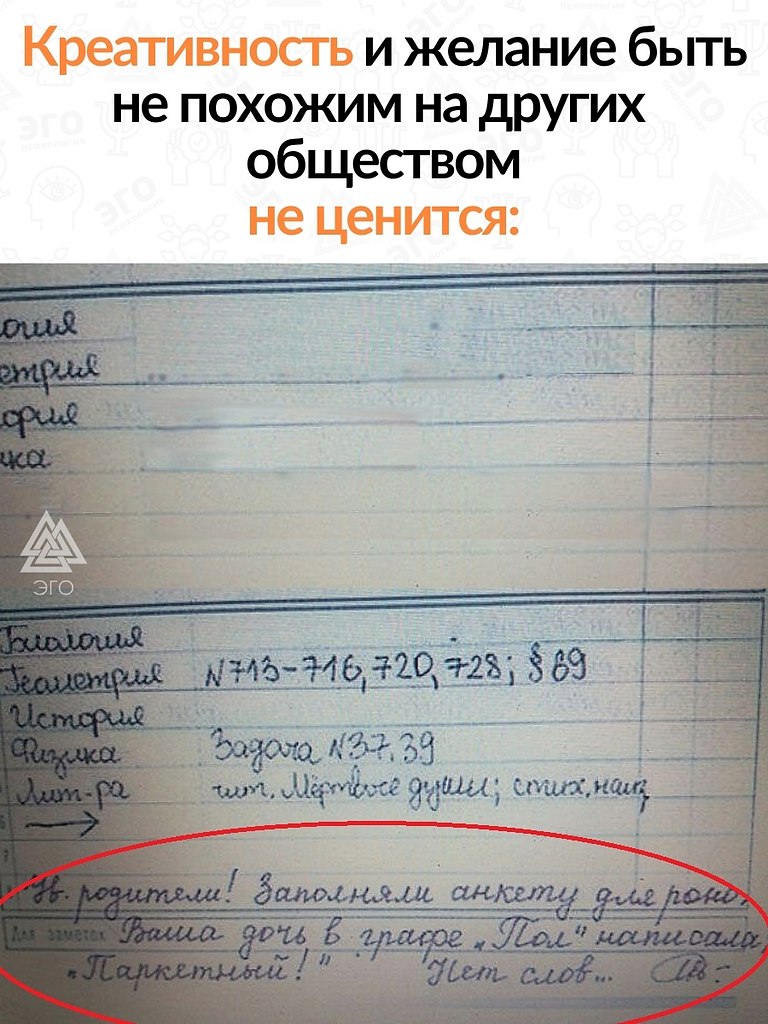 Креативность и желание быть
не похожим на других
обществом
не ценится:
огия
етрия
ория
ика
ЭГО
Биология
Геометрия N713-716, 720, 728; § 69
История
Физика Задача N37, 39
Лит-ра чит. Мёртвые души; стих. наиз
Ув. родители! Заполняли анкету для роно.
Для заметок Ваша дочь в графе „Пол" написала,
„Паркетный!" Нет слов...